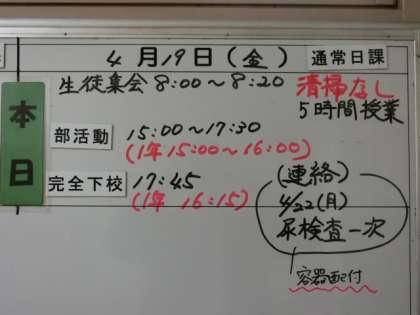 4月19日(金) 通常日課
本日
生徒集会 8:00〜8:20 清掃なし
5時間授業
部活動 15:00〜17:30
(1年15:00〜16:00)
完全下校 17:45
(1年 16:15)
(連絡)
4/22(月)
尿検査一次
容器配付